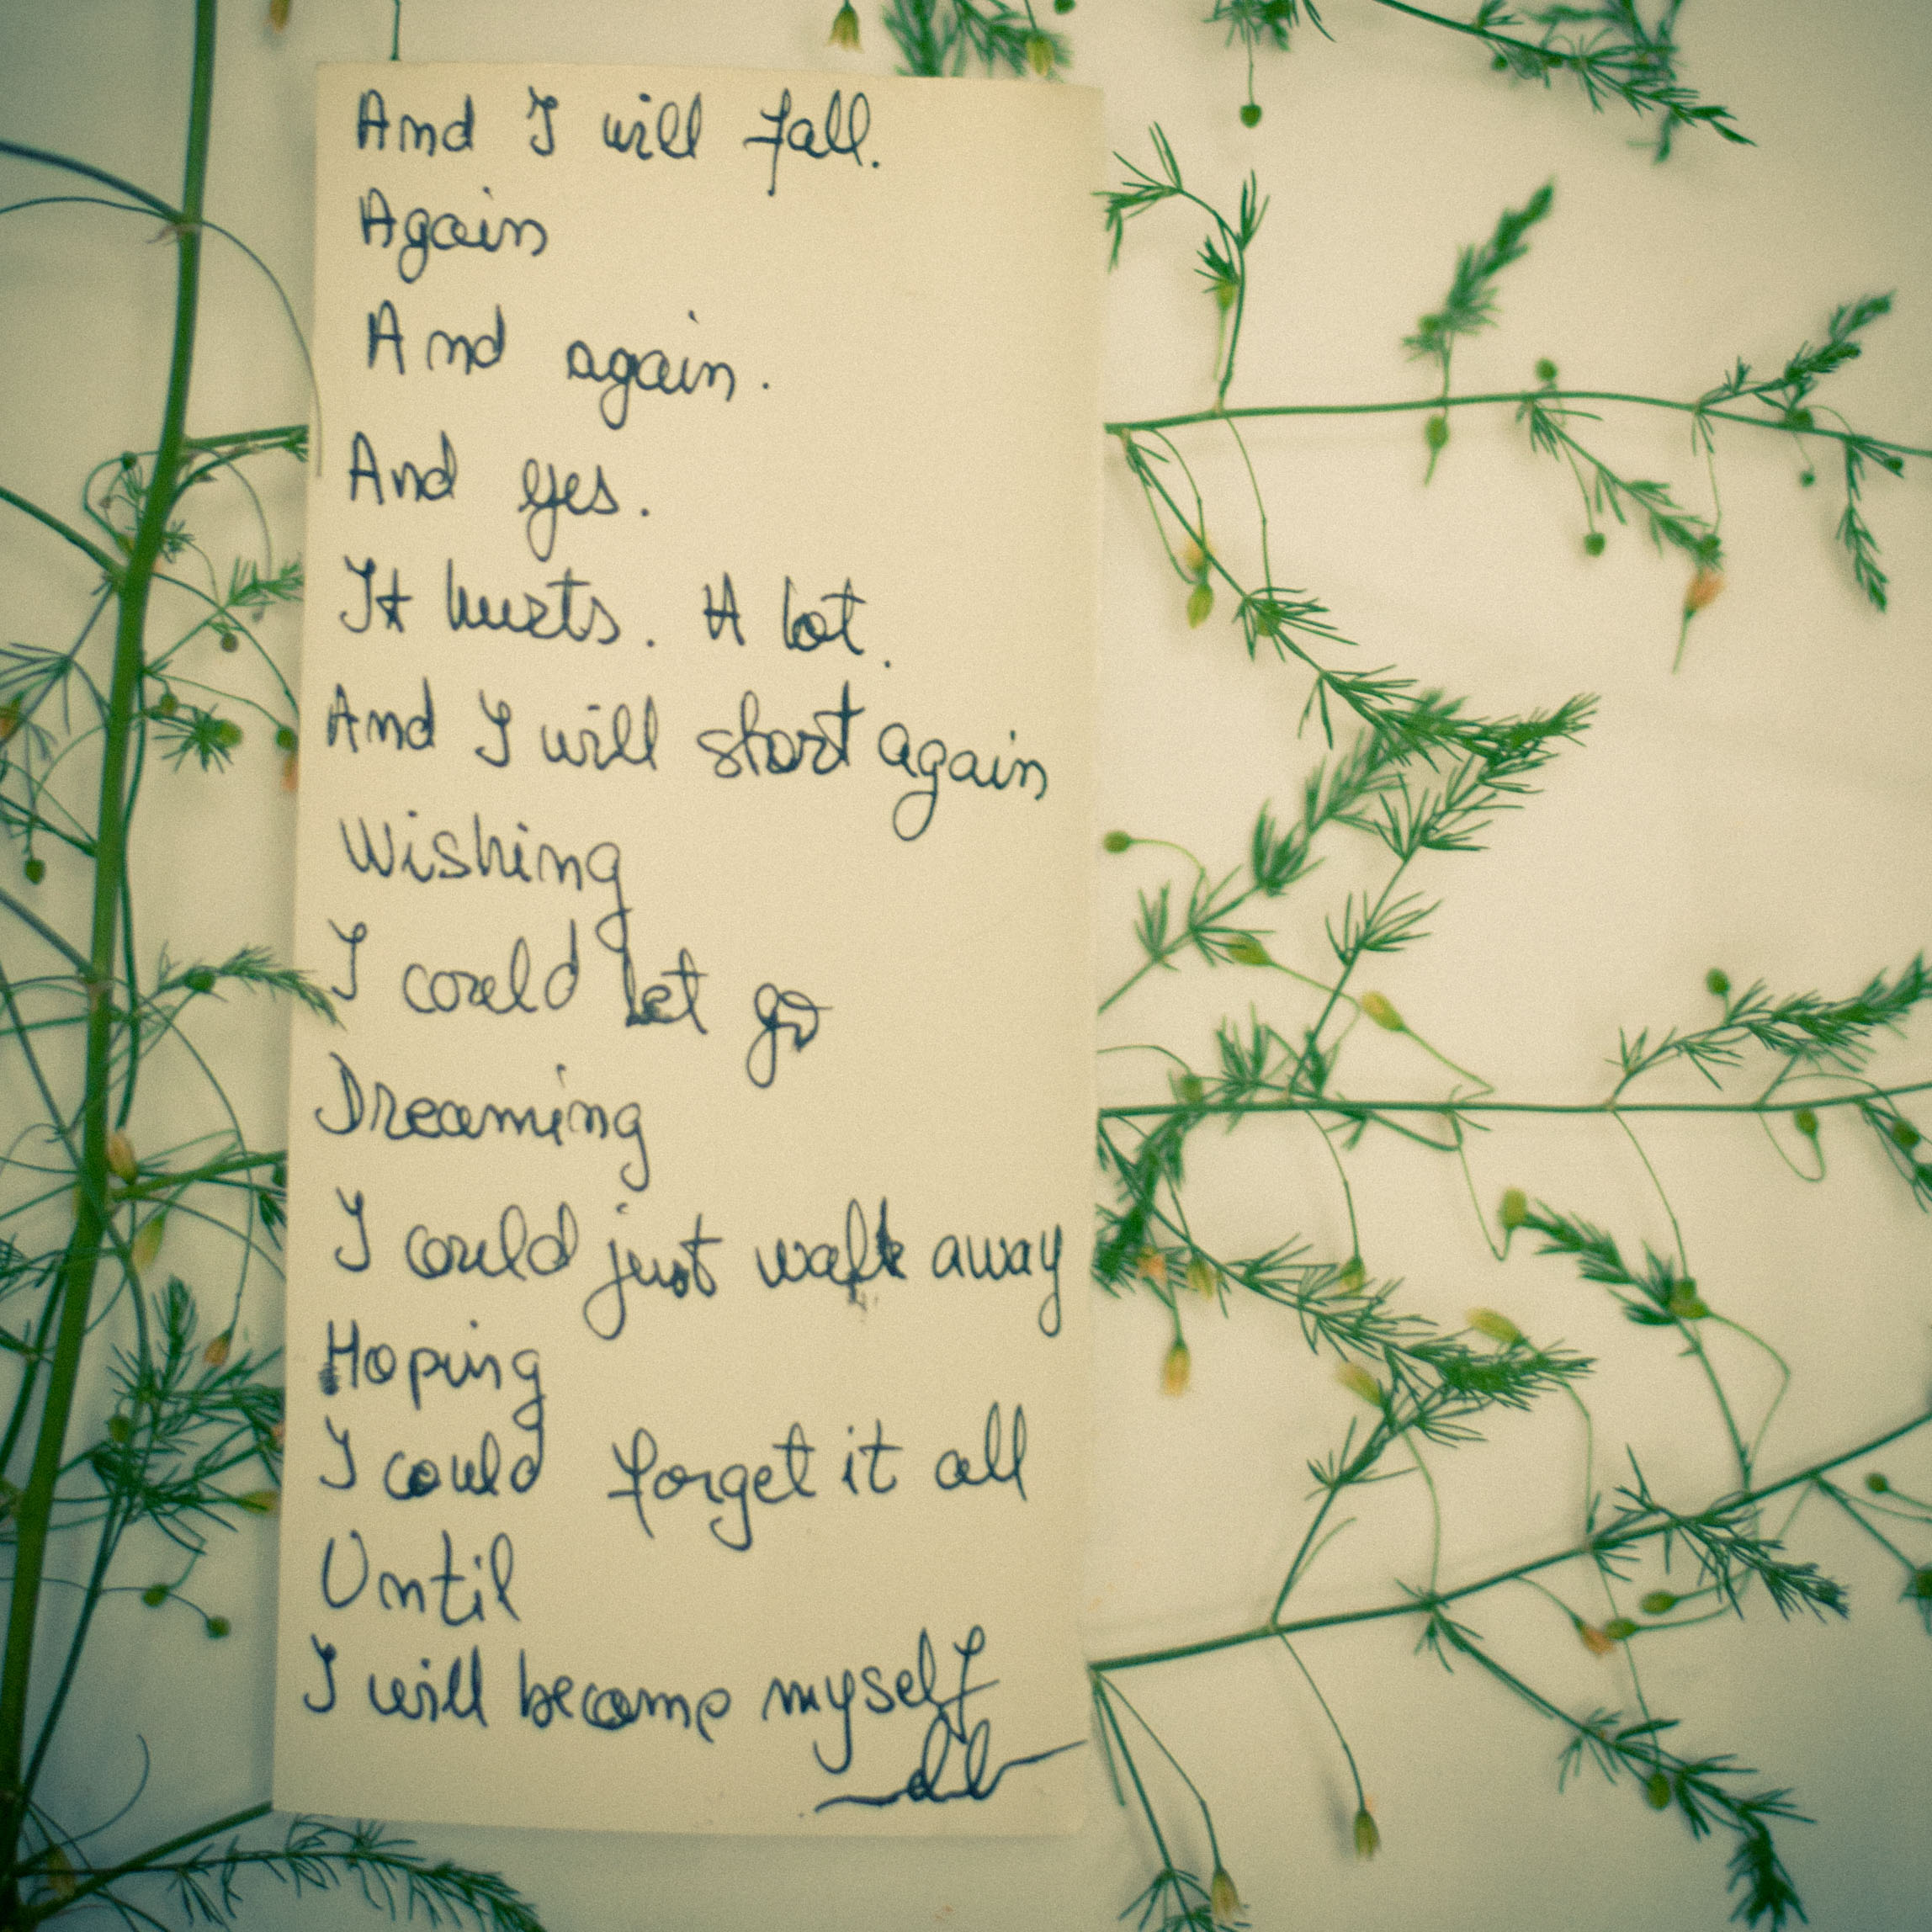 And I will fall.
Again
And again.
And yes.
It hurts. A lot.
And I will start again
Wishing
I could let go
Dreaming
I could just walk away
Hoping
I could forget it all
Until
I will become myself
db